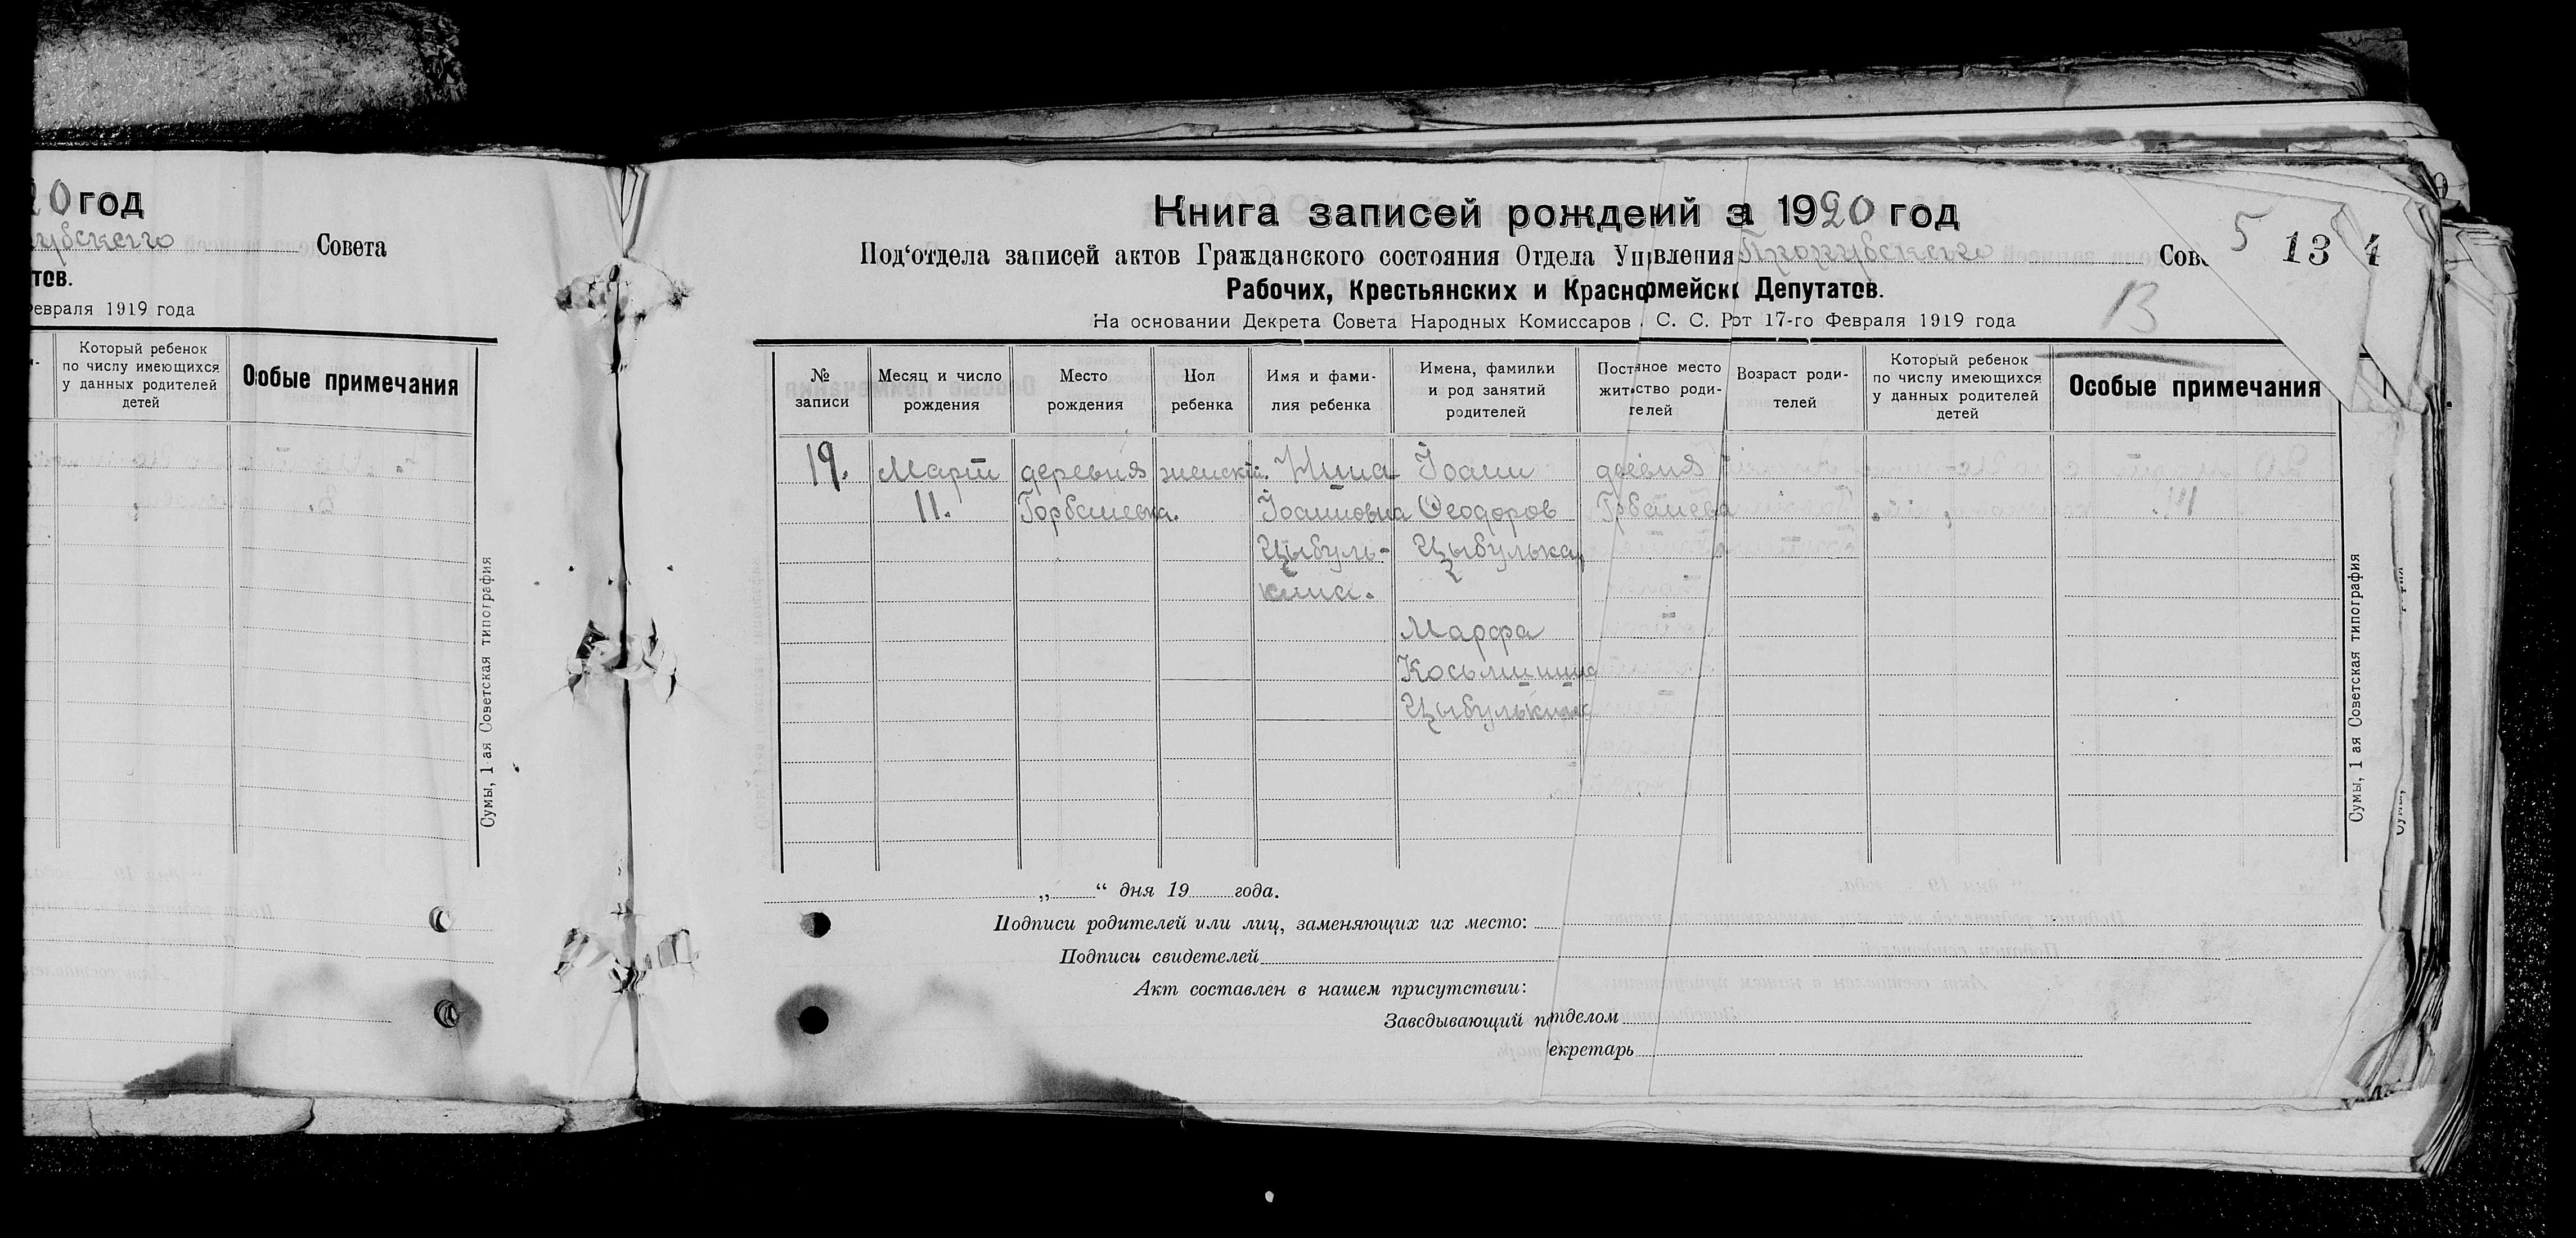 0 год
Совета
тов.
евраля 1919 года
Который ребенок
по числу имеющихся
у данных родителей
детей
Особые примечания
Сумы, 1-ая Советская типография
Книга записей рождений за 1920 год
Под'отдела записей актов Гражданского состояния Отдела Упрвления Сов
Рабочих, Крестьянских и Красноормейск Депутатов.
На основании Декрета Совета Народных Комиссаров . С. С. Р от 17-го Февраля 1919 года
5 13 4
13
№
записи
Месяц и число
рождения
Место
рождения
Пол
ребенка
Имя и фами-
лия ребенка
Имена, фамилии
и род занятий
родителей
Постяное место
жительство роди-
телей
Возраст роди-
телей
Который ребенок
по числу имеющихся
у данных родителей
детей
Особые примечания
19. Март деревня женскій. Нина Іоанн
11. Горбашевка. Іоанновна Ѳеодоров
Цыбуль- Цыбулька,
кина.
Марфа
Косьминина
Цыбулькина
„ “ дня 19 года.
Подписи родителей или лиц, заменяющих их место:
Подписи свидетелей
Акт составлен в нашем присутствии:
Заведывающий потделом
екретарь
Сумы, 1 ая Советская типография